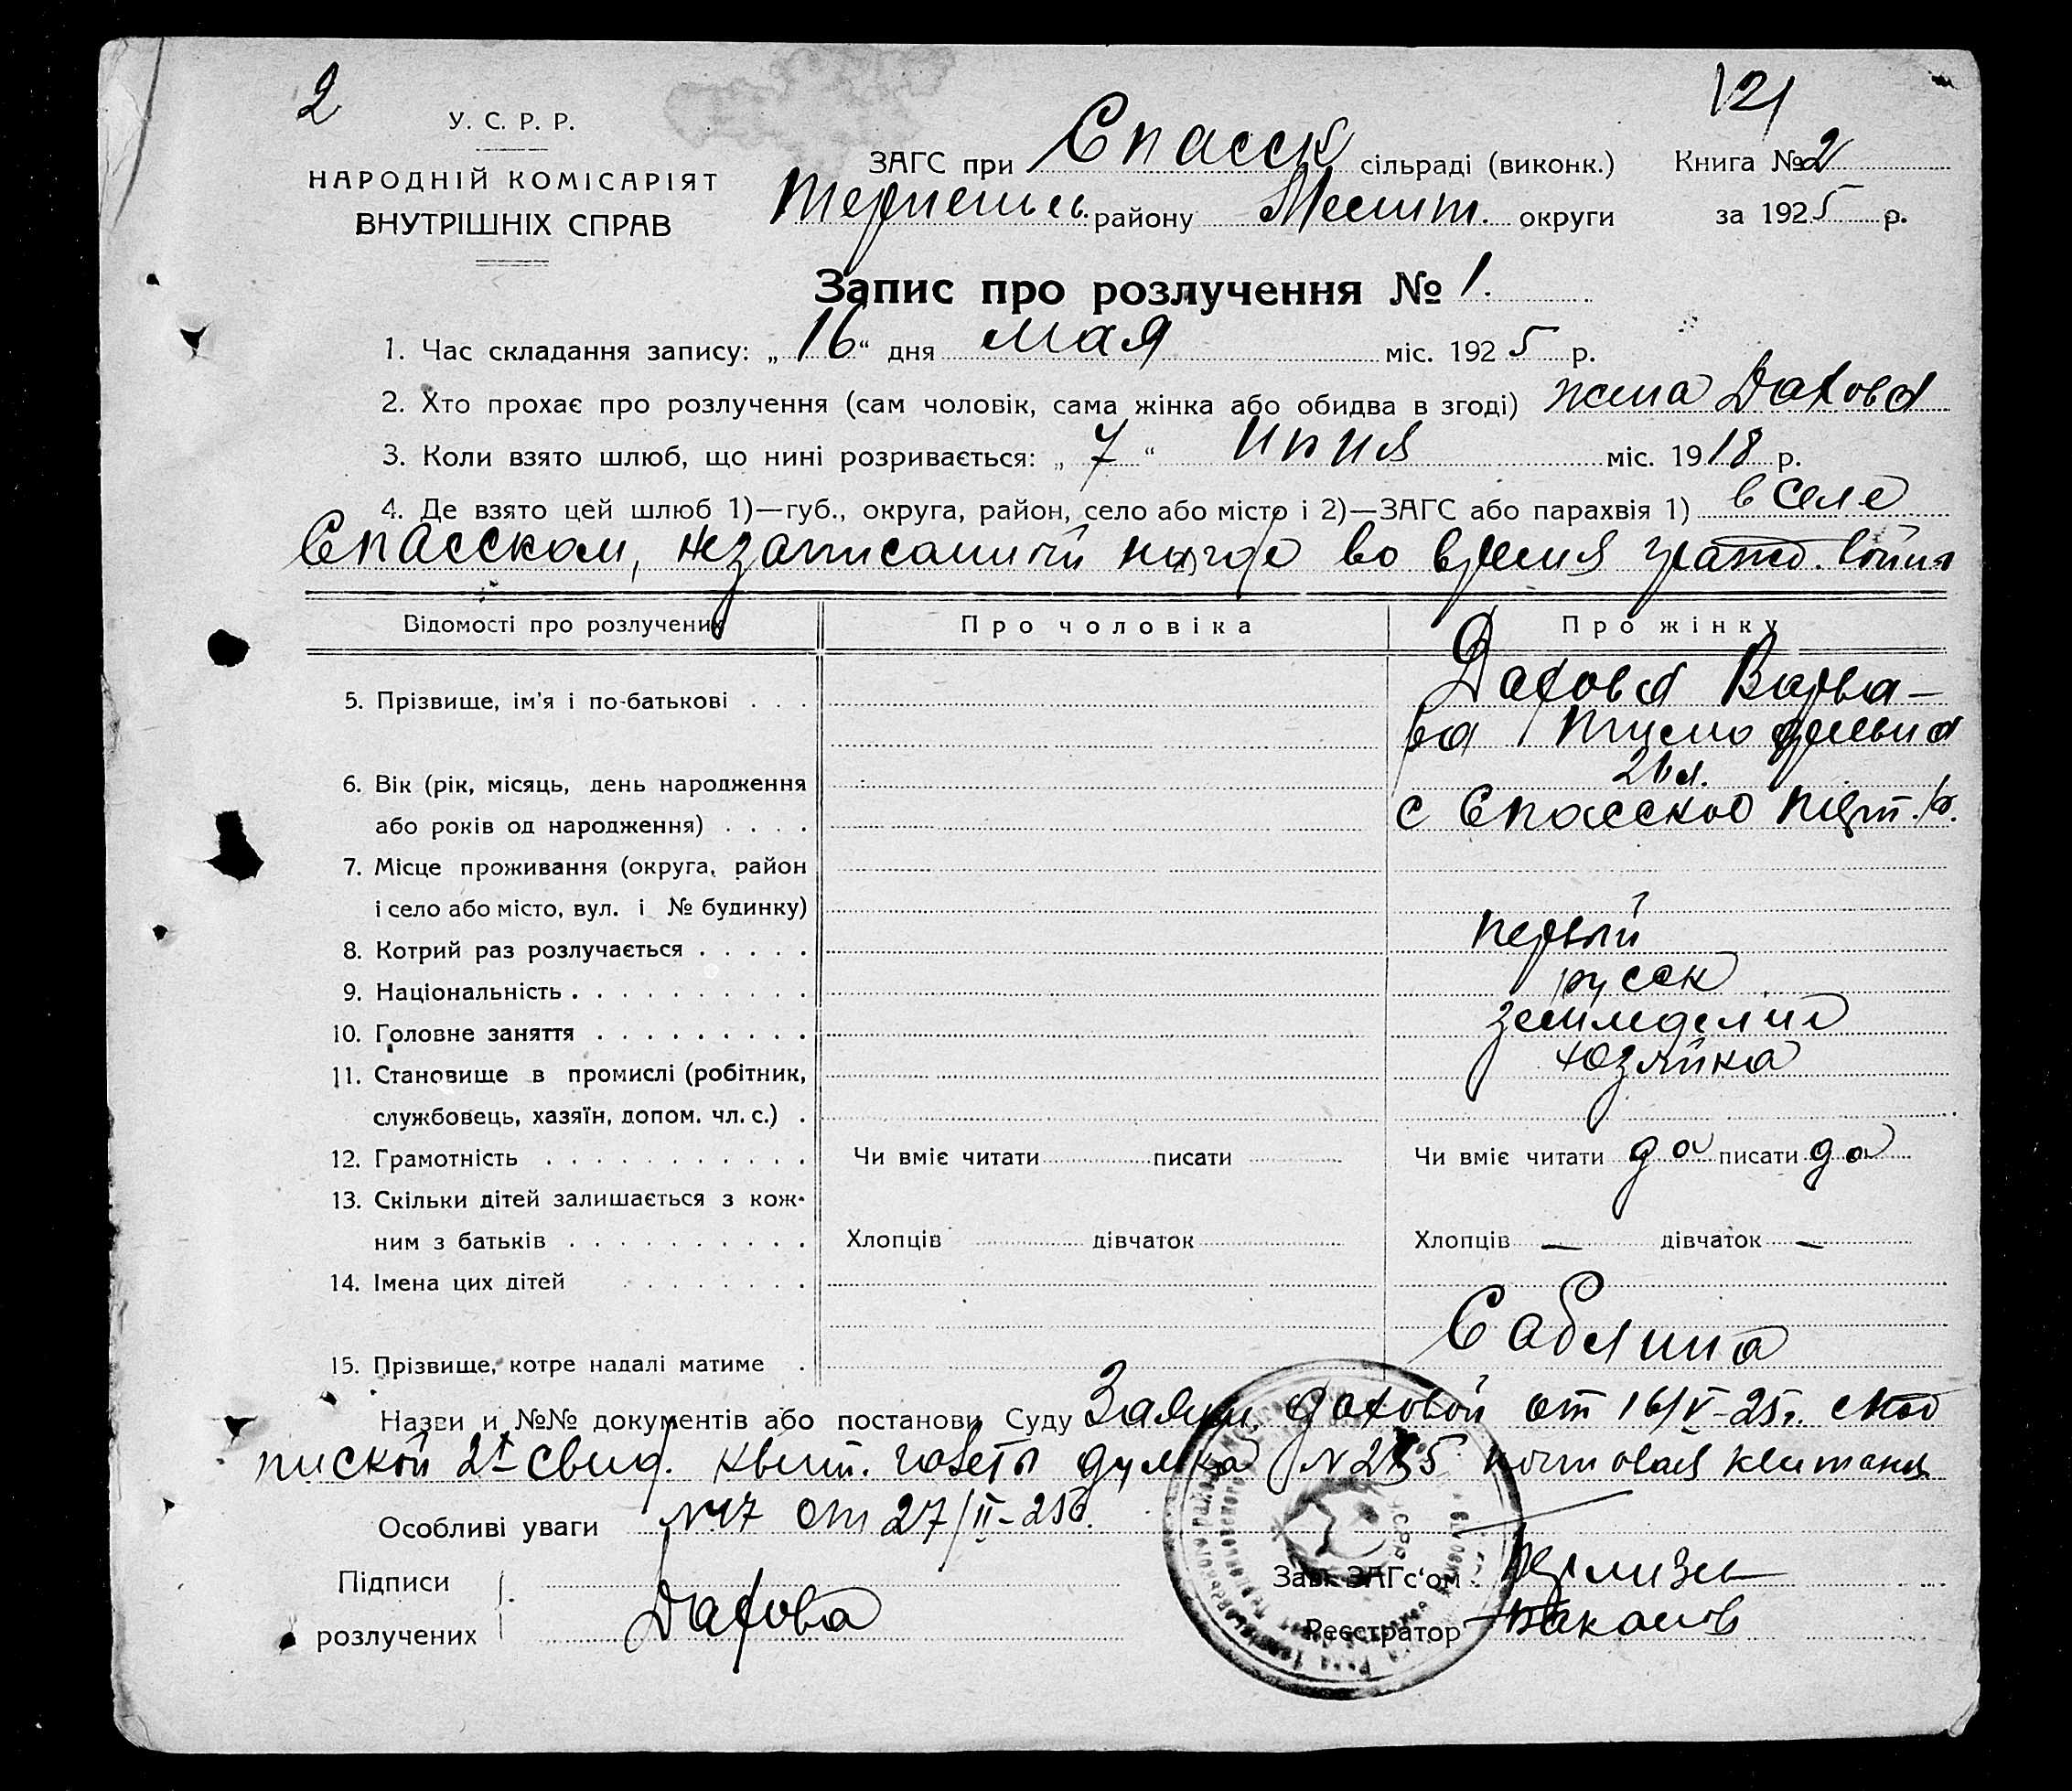 2
121
У. С. Р. Р.
НАРОДНІЙ КОМІСАРІЯТ
ВНУТРІШНІХ СПРАВ
ЗАГС при Спасск сільраді (виконк.) Книга № 2
району Мелит. округи за 1925 р.
Запис про розлучення № 1.
1. Час складання запису: „16“ дня мая міс. 1925 р.
2. Хто прохає про розлучення (сам чоловік, сама жінка або обидва в згоді) жена Дахова
3. Коли взято шлюб, що нині розривається: „7“ міс. 1918 р.
4. Де взято цей шлюб 1)—губ., округа, район, село або місто і 2)—ЗАГС або парахвія 1) в селе
Спасском, незаписанный нигде во время гражд. войны
Відомості про розлучених Про чоловіка Про жінку
5. Прізвище, ім'я і по-батькові . . . Дахова Варва-
ра Тимофеевна
6. Вік (рік, місяць, день народження
або років од народження) . . . . с Спасское
7. Місце проживання (округа, район
і село або місто, вул. і № будинку)
8. Котрий раз розлучається . . . . . первый
9. Національність . . . . . . . . . . русск
10. Головне заняття . . . . . . . . . земледелие
11. Становище в промислі (робітник, хозяйка
службовець, хазяїн, допом. чл. с.) .
12. Грамотність . . . . . . . . . . . Чи вміє читати писати Чи вміє читати да писати да
13. Скільки дітей залишається з кож-
ним з батьків . . . . . . . . . . Хлопців дівчаток Хлопців — дівчаток —
14. Імена цих дітей . . . . . . .
15. Прізвище, котре надалі матиме . Саблина
Назви и №№ документів або постанови Суду Заявл. Даховой от 16/V-25г. с под
пиской 2х свид. квит. газеты думка почтовая квитанц
Особливі уваги №17 от 27/II-25г.
Підписи
розлучених Дахова
Зав. ЗАГс'ом
Реєстратор